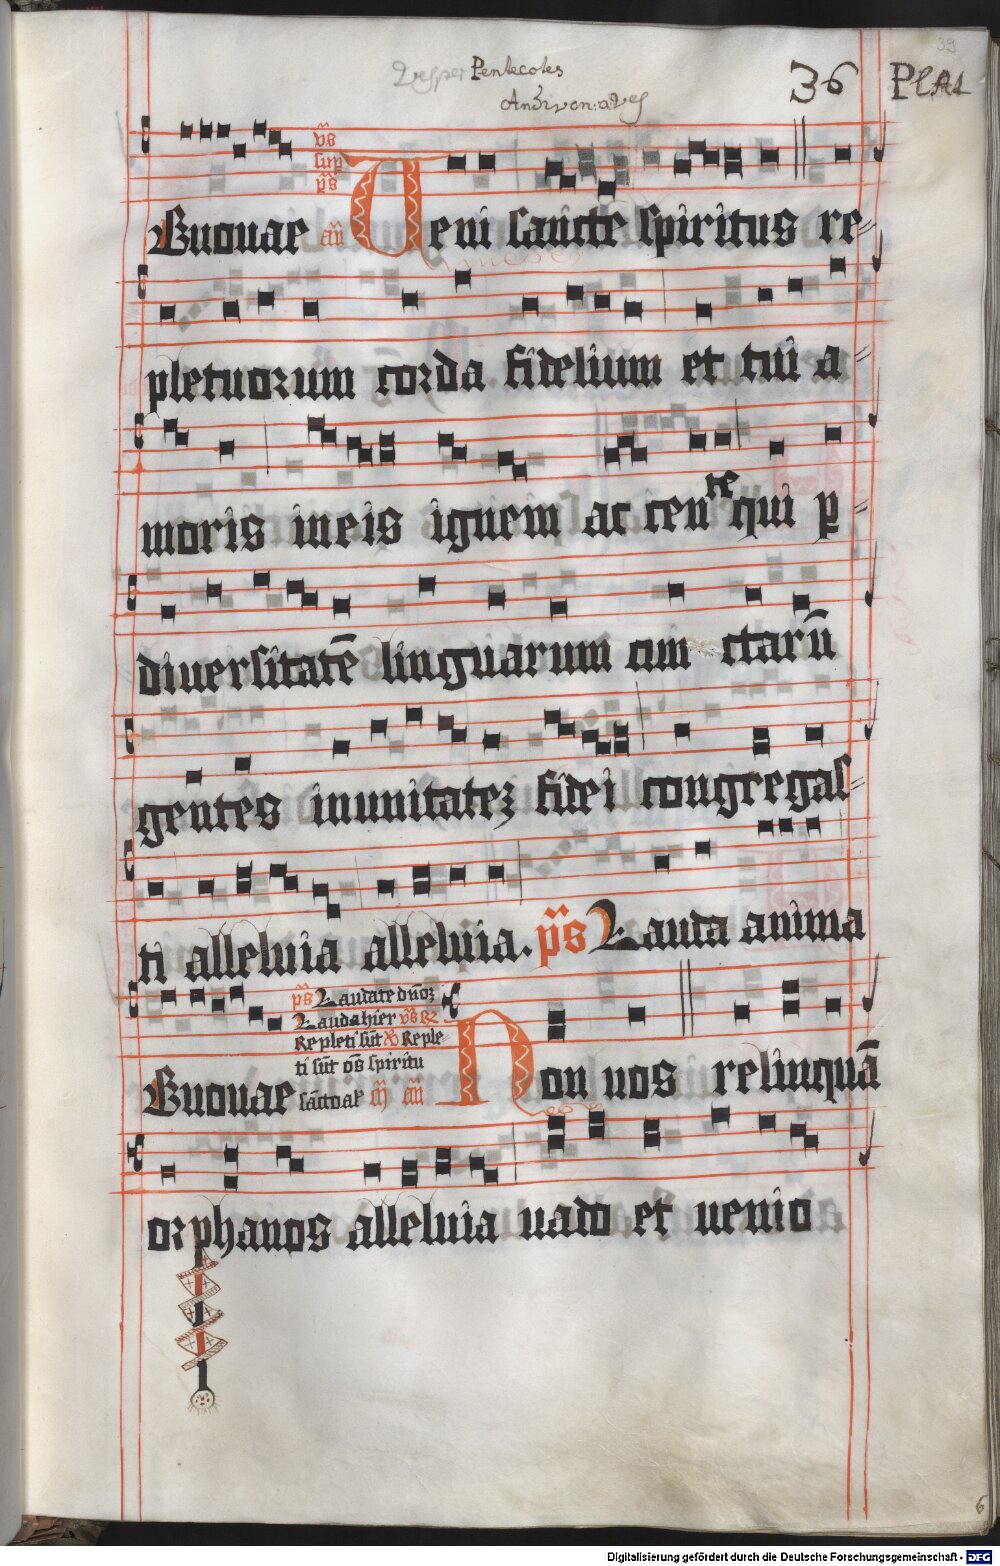 39
Vesper Pentecotes
Antivon:a Ves
36 PlAt
v̄s
sup
p̄s
Euouae an̄ Veni sancte spiritus re=
pletuorum corda fidelium et tui a=
moris ineis ignem accende qui p=
diversitatē linguarum cun ctarū
gentes inunitatez fidei congregas=
ti alleluia alleluia. p̄s Lauda anima
p̄s Laudate dnoꝫ
Lauda hier
Repleti sūt Reple=
ti sūt oēs spiritu
Euouae sāncto ał an̄ Non uos relinquā
orphanos alleluia uado et uenio
6
Digitalisierung gefördert durch die Deutsche Forschungsgemeinschaft - DFG